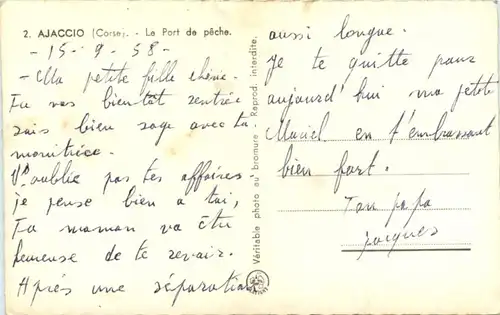 2. AJACCIO (Corse). - Le Port de pêche.
- 15 - 9 - 58 -
- Ma petite fille chérie.
Tu vas bientôt rentrée
sois bien sage avec ta
monitrice.
N'oublie pas tes affaires.
je pense bien à toi,
Ta maman va être
heureuse de te revoir.
Après une séparation
aussi longue.
Je te quitte pour
aujourd'hui ma petite
en t'embrassant
bien fort.
Ton papa
Jacques
Véritable photo au bromure - Reprod. interdite.